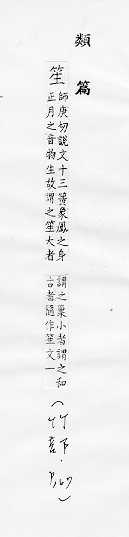 類篇
笙
師庚切說文十三簧象鳳之身
正月之音物生故謂之笙大者
謂之巢小者謂之和
古者隨作笙文一